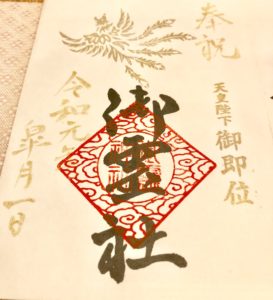 奉祝
天皇陛下
御即位
御霊社
令和元年
皐月一日